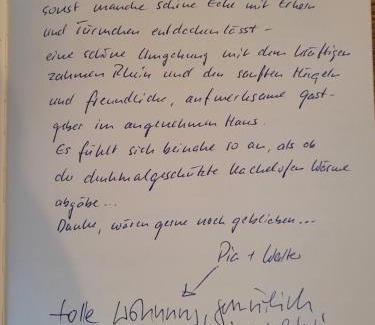 sonst manche schöne Ecke mit Erkern
und Türmchen entdecken lässt -
eine schöne Umgebung mit dem kräftigen
zahmen Rhein und den sanften Hügeln
und freundliche, aufmerksame Gast-
geber im angenehmen Haus.
Es fühlt sich beinahe so an, als ob
der denkmalgeschützte Kachelofen Wärme
abgäbe...
Danke, wären gerne noch geblieben...
Pia + Walter
tolle Wohnung, gemütlich,